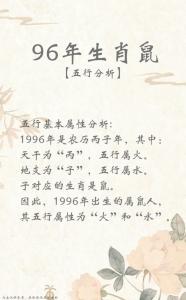 96年生肖鼠
【五行分析】
五行基本属性分析:
1996年是农历丙子年，其中:
天干为“丙”，五行属火。
地支为“子”，五行属水。
子对应的生肖是鼠。
因此，1996年出生的属鼠人，
其五行属性为“火”和“水”，